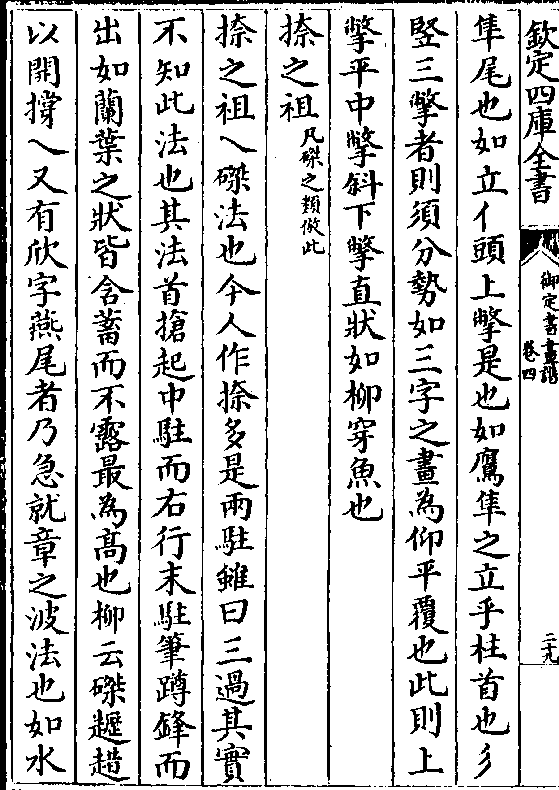 欽定四庫全書
御定書畫譜
卷四
二九
隼尾也如立亻頭上撆是也如鷹隼之立乎柱首也彡
竪三撆者則須分勢如三字之畫為仰平覆也此則上
撆平中撆斜下撆直狀如柳穿魚也
捺之祖凡磔之類倣此
捺之祖乀磔法也今人作捺多是兩駐雖曰三過其實
不知此法也其法首搶起中駐而右行末駐筆蹲鋒而
出如蘭葉之狀皆含蓄而不露最為髙也柳云磔𧽼趞
以開撐乀又有欣字燕尾者乃急就章之波法也如水